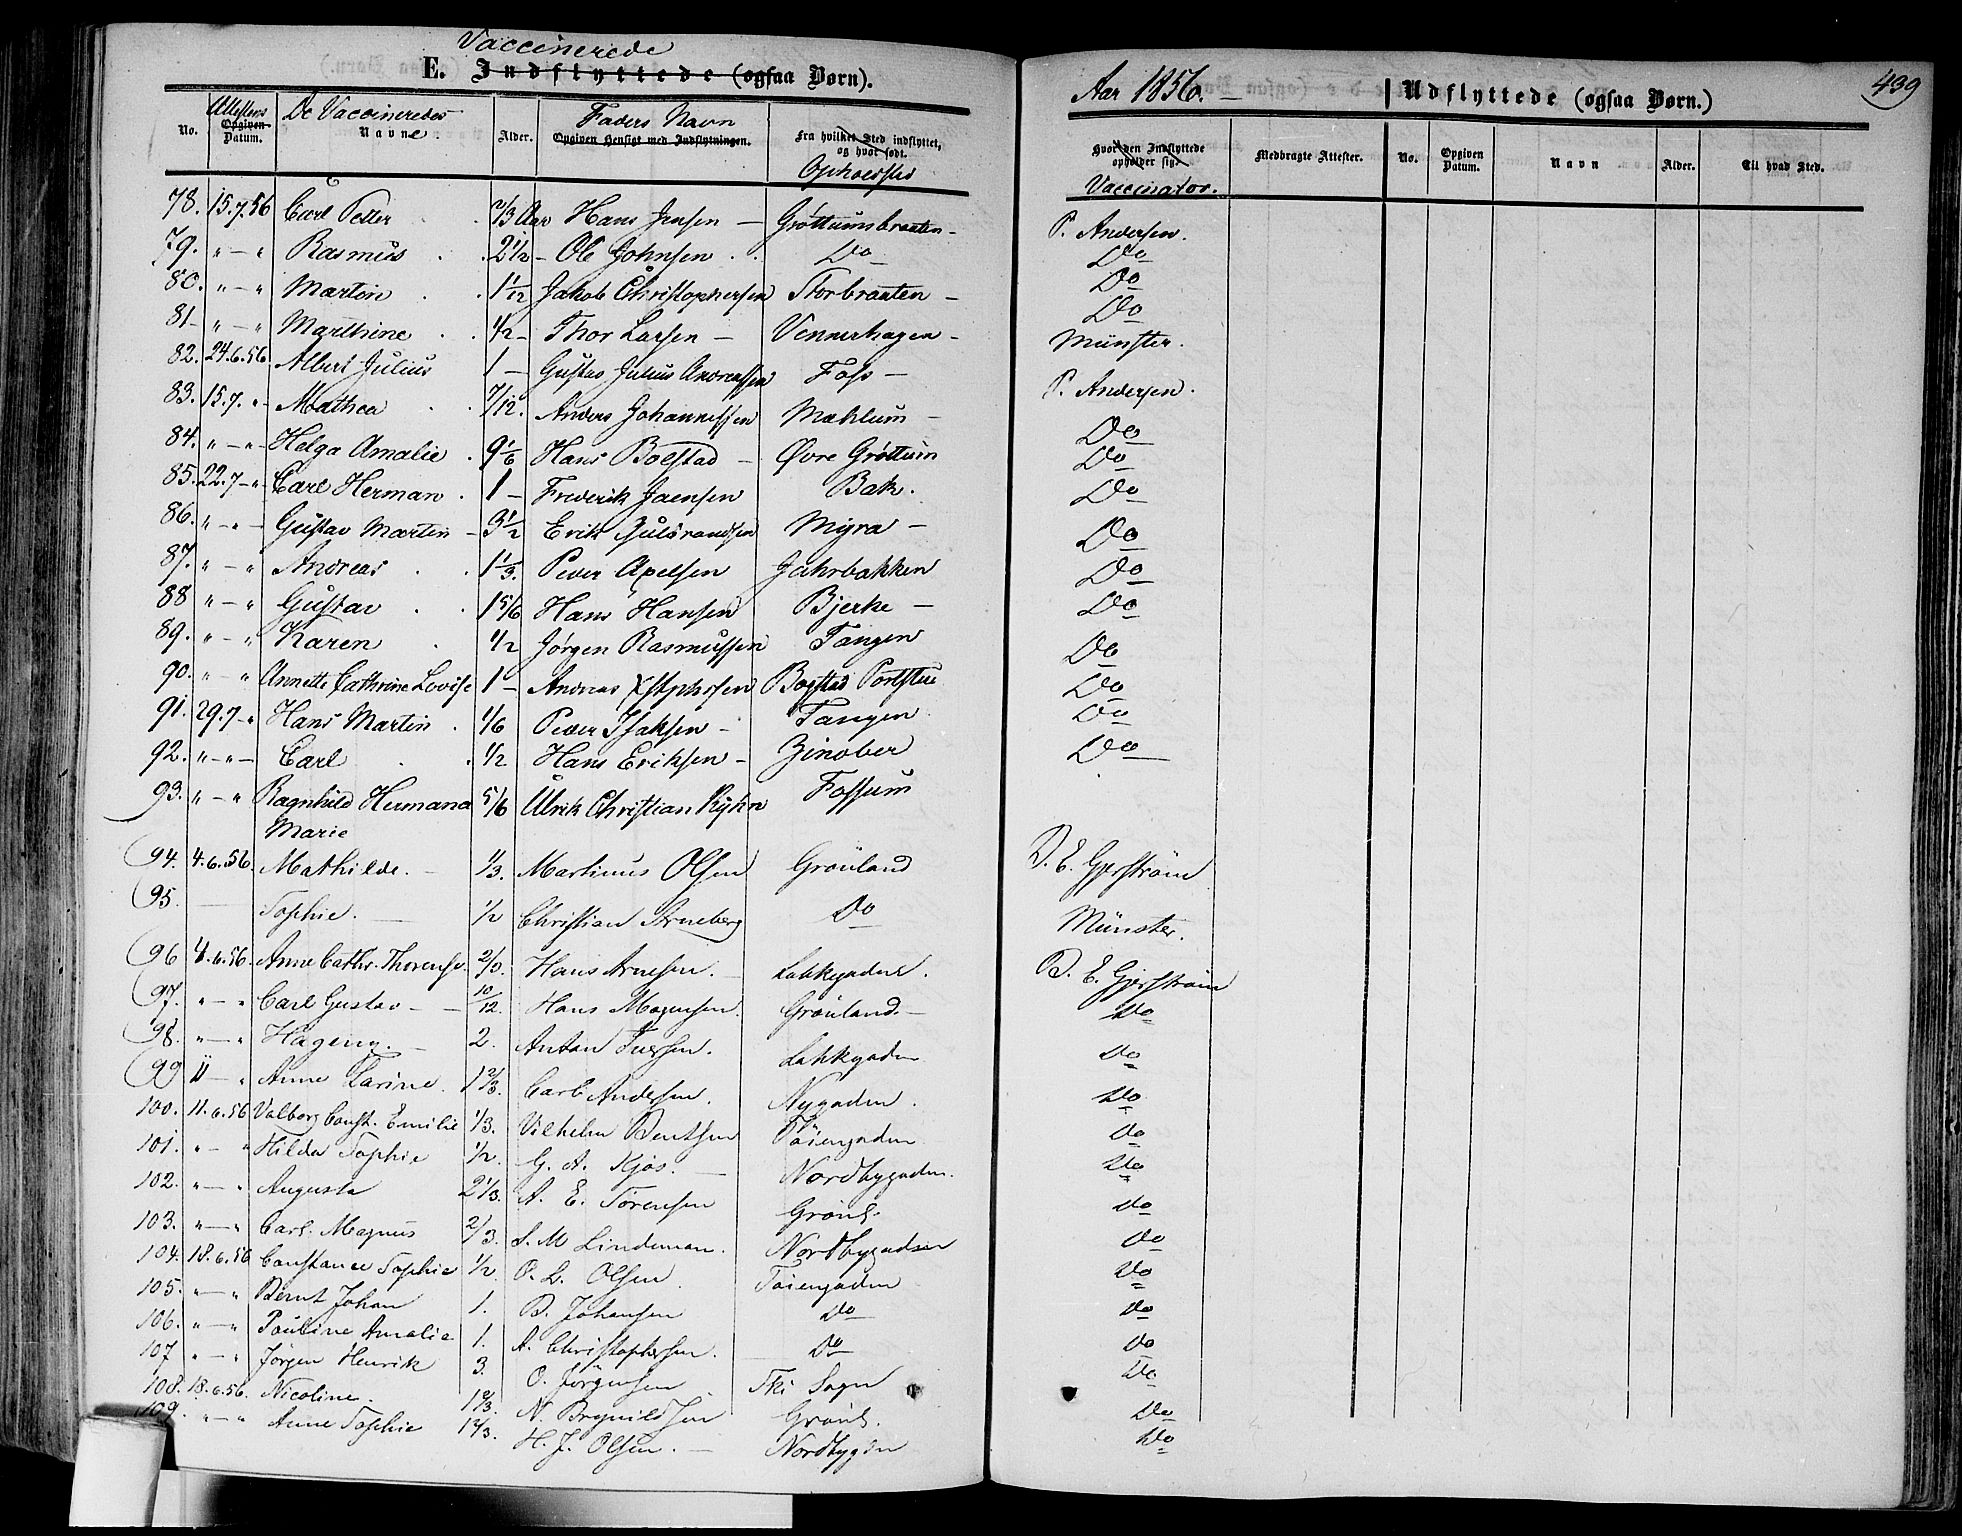 Vaccinerede
E. Indflyttede (ogsaa Børn).
No. Attestens Opgiven Datum. De Vaccineredes Navne Alder. Faders Navn Opgiven Hensigt med Indflytningen. Fra hvilket Sted indflyttet, og hvor født. Opholdssted
78. 15.7.56 Carl Petter 2/3 Aar Hans Jensen - Grøttumsbraaten -
79. " - " Rasmus 2 1/2 - Ole Johnsen Do
80. " - " Martin 1 1/12 Jakob Christophersen Storbraaten -
81 - " - " Marthine 1/2 - Thor Larsen - Vennerhagen -
82. 24.6.56 Albert Julius 1 - Gustav Julius Andreassen Foss -
83. 15.7. " Mathea 7/12. Anders Johannessen Mæhlum -
84. " - " - Helga Amalie 9 1/6 Hans Bolstad - Øvre Grøttum
85. 22.7 - " - Carl Herman 1 - Frederik Jaensen Bak.
86. " - " - Gustav Martin - 3 1/2 - Erik Gulbrandsen Myra -
87. " - " Andreas 1 1/3. Peder Axelsen Jahrbakken
88 " - " Gustav 1 5/6 Hans Hansen Bjerke -
89. " - " Karen 1/2 Jørgen Rasmussen Tangen
90. " - " Annette Cathrine Lovise 1 - Andreas Xstphersen Bogstad Portstue
91. 29.7 - " Hans Martin 1/6 Peder Isaksen - Tangen
92. " - " - Carl 1/2 Hans Eriksen - Zinober
93. " - " Ragnhild Hermana 5/6 Ulrik Christian Kyhn Fossum
Marie
94. 4.6.56 Mathilde. - 1/3. Martinus Olsen Grønland
95. Sophie. 1/2 Christian Strneberg Do
96 4.6.56. Anne Cathr. Thorense. 2/3. Hans Arnesen. - Lakkegaden.
97. " - " Carl Gustav - 10/12. Hans Mogensen. Grønland. -
98. " - " Hageny. - 2. Anton Iversen. Lakkegaden
99 " - " Anne Karine. 1 2/3. Carl Andersen. Nygaden.
100. 11.6.56 Valborg Const. Emilie 1/3. Vilhelm Bentsen Tøiengaden
101. " - " Hilda Sophie 1/2. G. A. Kjøs. - Nordbygaden.
102. " - " Augusta 2 1/3. A. E. Sørensen Grønl.
103. " - " Carl Magnus 2/3. S. M Lindeman. Nordbygaden
104. 18.6.56 Constance Sophie 1/2. O. L. Olsen Tøiengaden
105. " - " Bernt Johan 1. B. Johansen Do
106. " - " Pauline Amalie 1. A. Christophersen. Do
107 " - " Jørgen Henrik 3. O. Jörgensen Ski Sogn
108. 18.6.56. Nicoline. 1 2/3. N. Brynildsen Grønl.
109. " - " Anne Sophie 1 2/3. H. J. Olsen. - Nordbygden
Aar 1856. - Udflyttede (ogsaa Børn.) 439
Hvor den Indflyttede opholder sig. Vaccinator. Medbragte Attester. No. Opgiven Datum. Navn Alder. Til hvad Sted.
P. Andersen.
Do
Do
Do
Münster.
P. Andersen.
Do
Do
Do
Do
Do
Do
Do
Do
Do
Do
D. E. Gjerström
Münster.
D. E. Gjerström
Do
Do
Do
Do
Do
Do
Do
Do
Do
Do
Do
Do
Do